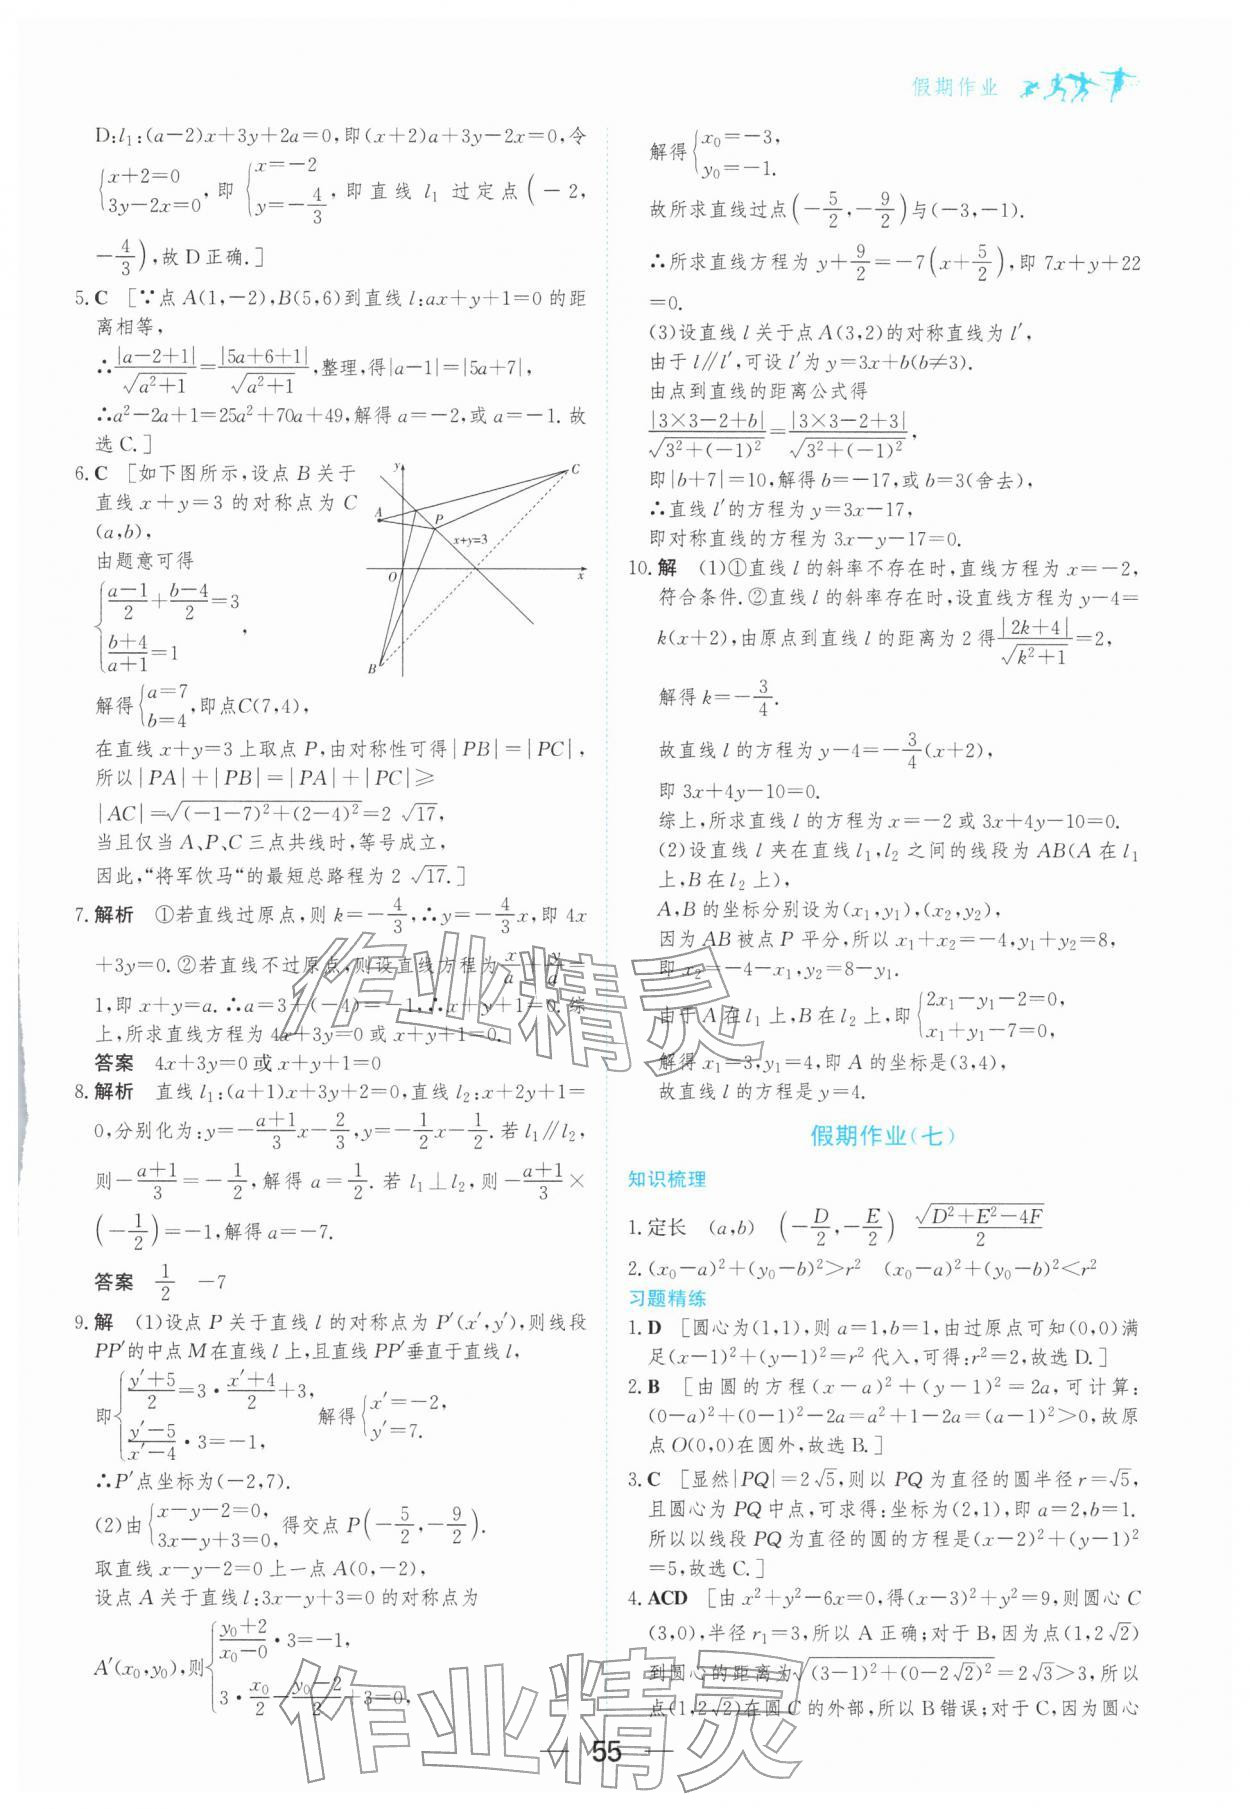 假期作业
D:l₁:(a-2)x+3y+2a=0,即(x+2)a+3y-2x=0,令
{x+2=0, 3y-2x=0},即{x=-2, y=-4/3},即直线 l₁ 过定点(-2,
-4/3),故 D 正确.]
5.C [∵点 A(1,-2),B(5,6)到直线 l:ax+y+1=0 的距
离相等,
∴|a-2+1|/√(a²+1)=|5a+6+1|/√(a²+1),整理,得|a-1|=|5a+7|,
∴a²-2a+1=25a²+70a+49,解得 a=-2,或 a=-1. 故
选 C.]
6.C [如下图所示,设点 B 关于
直线 x+y=3 的对称点为 C
(a,b),
由题意可得
{(a-1)/2+(b-4)/2=3, (b+4)/(a+1)=1},
解得{a=7, b=4},即点C(7,4),
y
C
A
P
x+y=3
O
x
B
在直线 x+y=3 上取点 P,由对称性可得|PB|=|PC|,
所以|PA|+|PB|=|PA|+|PC|≥
|AC|=√((-1-7)²+(2-4)²)=2√17,
当且仅当 A、P、C 三点共线时,等号成立,
因此,“将军饮马”的最短总路程为 2√17.]
7.解析 ①若直线过原点,则 k=-4/3,∴y=-4/3x,即 4x
+3y=0. ②若直线不过原点,则设直线方程为x/a+y/a=
1,即 x+y=a.∴a=3+(-4)=-1,∴x+y+1=0. 综
上,所求直线方程为 4x+3y=0 或 x+y+1=0.
答案 4x+3y=0 或 x+y+1=0
8.解析 直线 l₁:(a+1)x+3y+2=0,直线 l₂:x+2y+1=
0,分别化为:y=-(a+1)/3x-2/3,y=-1/2x-1/2. 若 l₁∥l₂,
则-(a+1)/3=-1/2,解得 a=1/2. 若 l₁⊥l₂,则-(a+1)/3×
(-1/2)=-1,解得 a=-7.
答案 1/2 -7
9.解 (1)设点 P 关于直线 l 的对称点为 P′(x′,y′),则线段
PP′的中点 M 在直线 l 上,且直线 PP′垂直于直线 l,
即{(y′+5)/2=3·(x′+4)/2+3, (y′-5)/(x′-4)·3=-1, 解得{x′=-2, y′=7.
∴P′点坐标为(-2,7).
(2)由{x-y-2=0, 3x-y+3=0, 得交点 P(-5/2,-9/2).
取直线 x-y-2=0 上一点 A(0,-2),
设点 A 关于直线 l:3x-y+3=0 的对称点为
A′(x₀,y₀),则{(y₀+2)/(x₀-0)·3=-1, 3·x₀/2-(y₀-2)/2+3=0,
解得{x₀=-3, y₀=-1.
故所求直线过点(-5/2,-9/2)与(-3,-1).
∴所求直线方程为 y+9/2=-7(x+5/2),即 7x+y+22
=0.
(3)设直线 l 关于点 A(3,2)的对称直线为 l′,
由于 l∥l′,可设 l′为 y=3x+b(b≠3).
由点到直线的距离公式得
|3×3-2+b|/√(3²+(-1)²)=|3×3-2+3|/√(3²+(-1)²),
即|b+7|=10,解得 b=-17,或 b=3(舍去),
∴直线 l′的方程为 y=3x-17,
即对称直线的方程为 3x-y-17=0.
10.解 (1)①直线 l 的斜率不存在时,直线方程为 x=-2,
符合条件.②直线 l 的斜率存在时,设直线方程为 y-4=
k(x+2),由原点到直线 l 的距离为 2 得|2k+4|/√(k²+1)=2,
解得 k=-3/4.
故直线 l 的方程为 y-4=-3/4(x+2),
即 3x+4y-10=0.
综上,所求直线 l 的方程为 x=-2 或 3x+4y-10=0.
(2)设直线 l 夹在直线 l₁,l₂ 之间的线段为 AB(A 在 l₁
上,B 在 l₂ 上),
A,B 的坐标分别设为(x₁,y₁),(x₂,y₂),
因为 AB 被点 P 平分,所以 x₁+x₂=-4,y₁+y₂=8,
即 x₂=-4-x₁,y₂=8-y₁.
由于 A 在 l₁ 上,B 在 l₂ 上,即{2x₁-y₁-2=0, x₁+y₁-7=0,
解得 x₁=3,y₁=4,即 A 的坐标是(3,4),
故直线 l 的方程是 y=4.
假期作业(七)
知识梳理
1.定长 (a,b) (-D/2,-E/2) √(D²+E²-4F)/2
2.(x₀-a)²+(y₀-b)²>r² (x₀-a)²+(y₀-b)²<r²
习题精练
1.D [圆心为(1,1),则 a=1,b=1,由过原点可知(0,0)满
足(x-1)²+(y-1)²=r² 代入,可得:r²=2,故选 D.]
2.B [由圆的方程(x-a)²+(y-1)²=2a,可计算:
(0-a)²+(0-1)²-2a=a²+1-2a=(a-1)²>0,故原
点 O(0,0)在圆外,故选 B.]
3.C [显然|PQ|=2√5,则以 PQ 为直径的圆半径 r=√5,
且圆心为 PQ 中点,可求得:坐标为(2,1),即 a=2,b=1.
所以以线段 PQ 为直径的圆的方程是(x-2)²+(y-1)²
=5,故选 C.]
4.ACD [由 x²+y²-6x=0,得(x-3)²+y²=9,则圆心 C
(3,0),半径 r₁=3,所以 A 正确;对于 B,因为点(1,2√2)
到圆心的距离为√((3-1)²+(0-2√2)²)=2√3>3,所以
点(1,2√2)在圆 C 的外部,所以 B 错误;对于 C,因为圆心
55
作业精灵
作业精灵